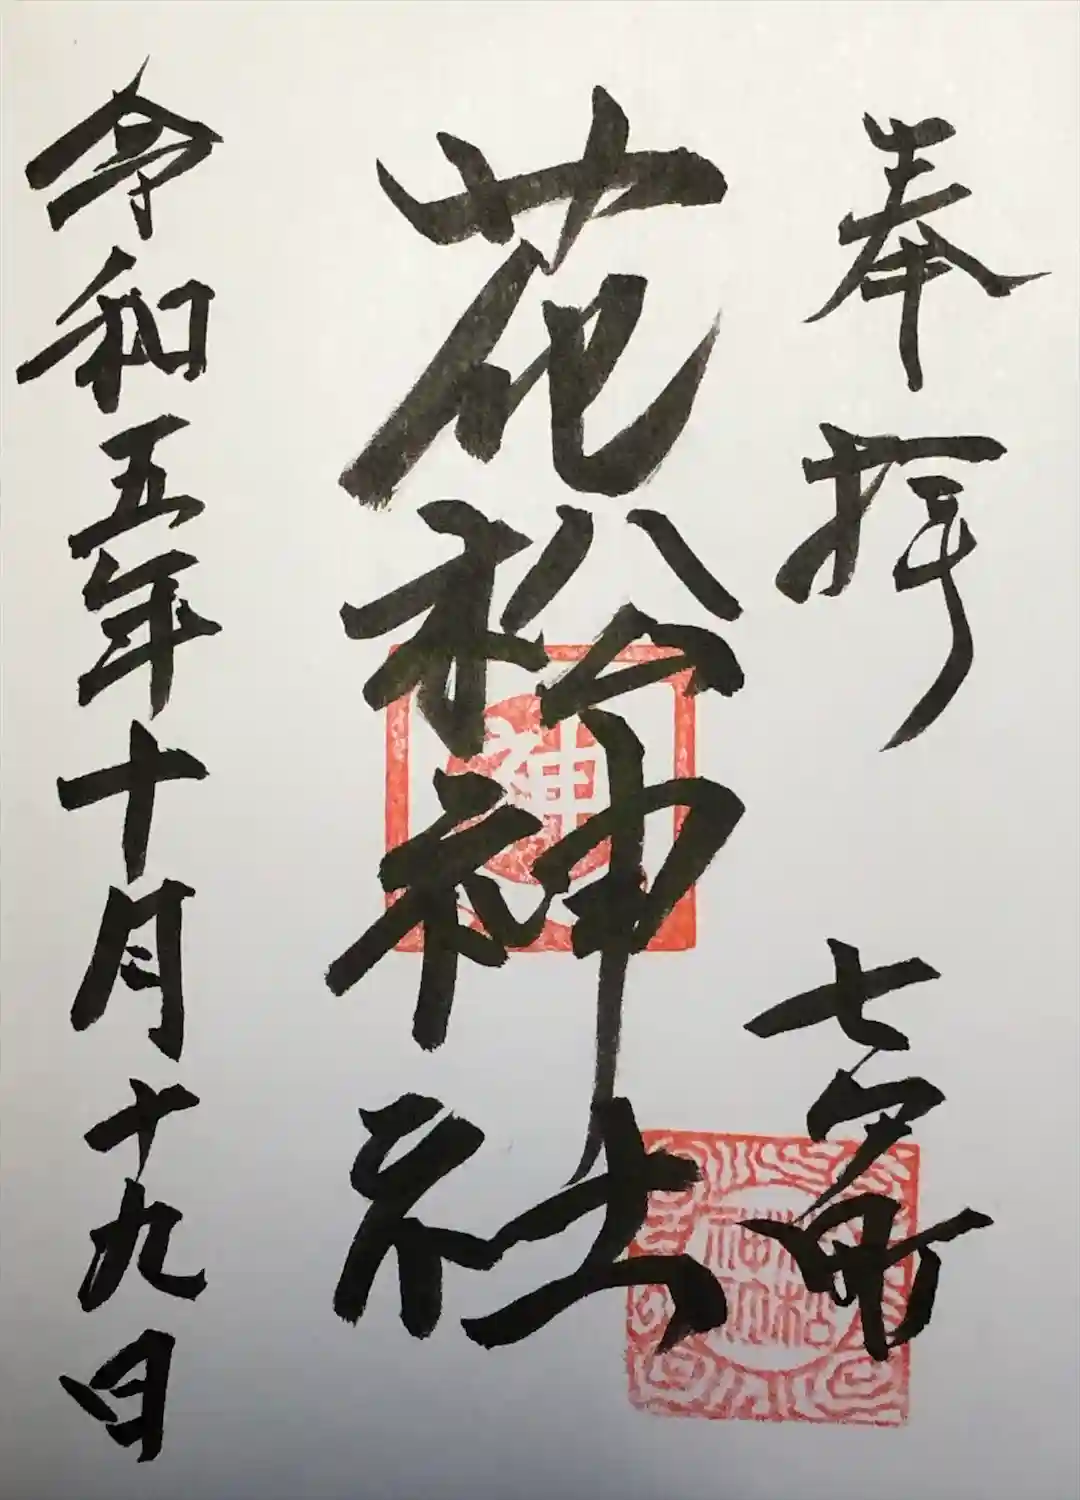 奉拝 七戸町
花松神社
令和五年十月十九日
神